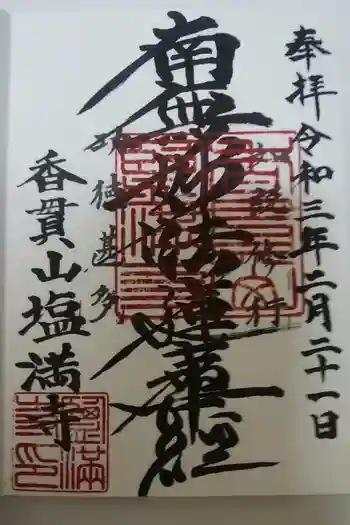 奉拝 令和三年二月二十一日
如説修行
南無妙法蓮華経
功徳甚多
香貫山塩満寺